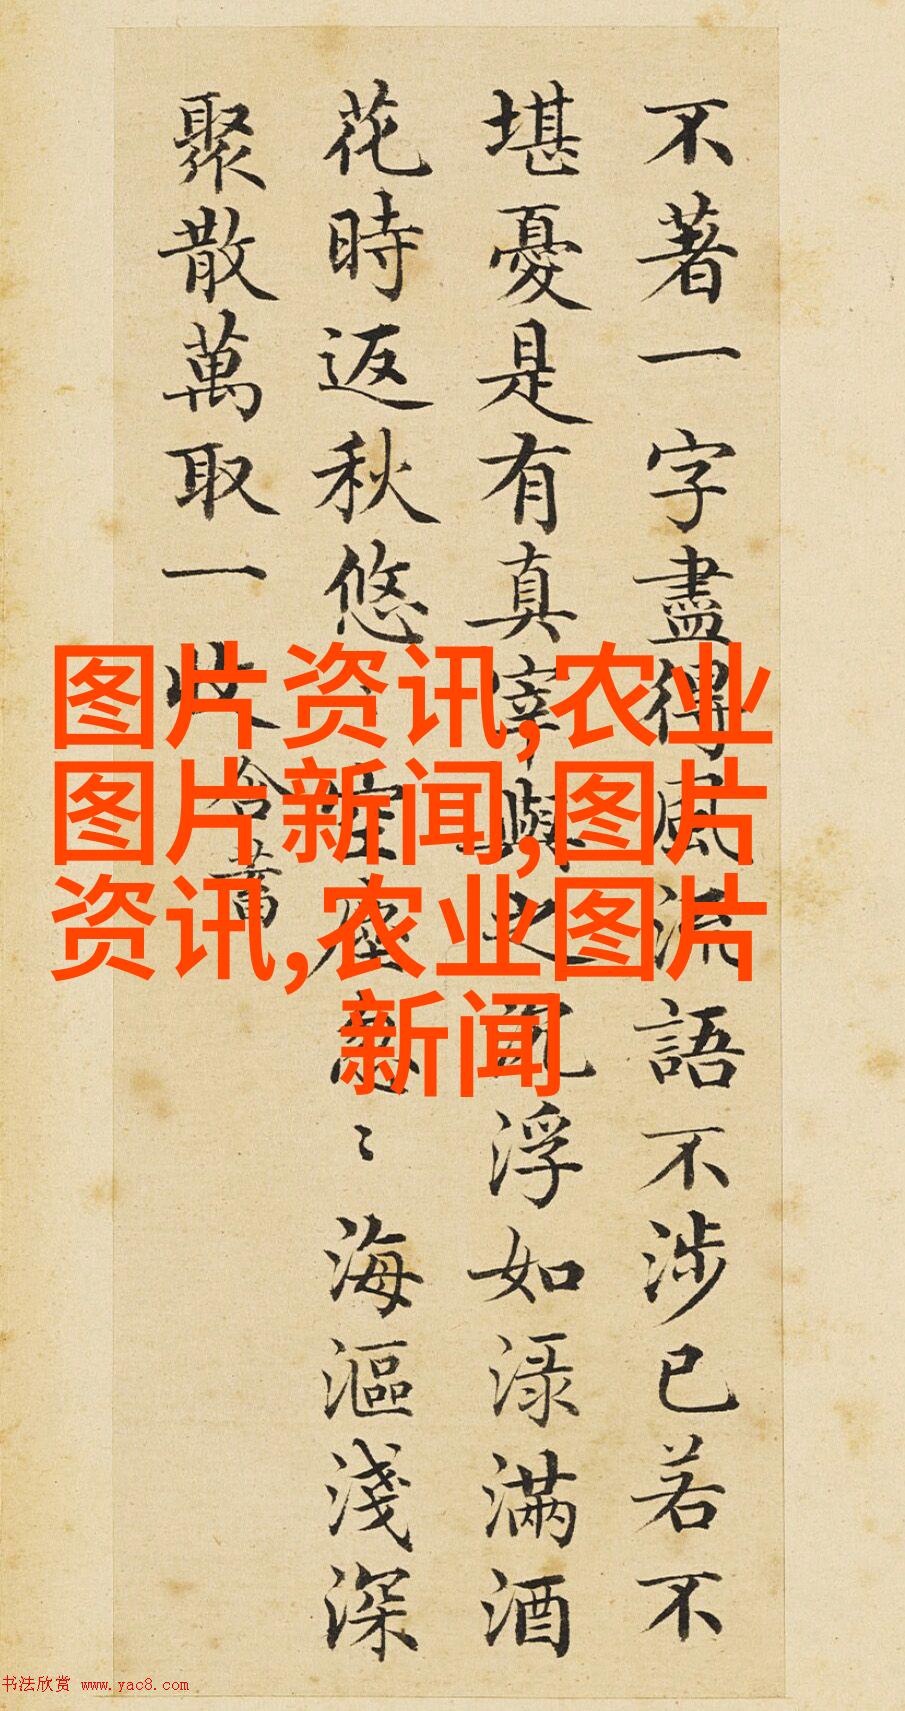 不著一字盡得風流語不涉已若不
堪憂是有真宰與之浮如淥滿酒
花時返秋悠、空塵忽〻海漚淺深
聚散萬取一收
含蓄
图片资讯,农业
图片新闻,图片
资讯,农业图片
新闻
书法欣赏 www.yac8.com